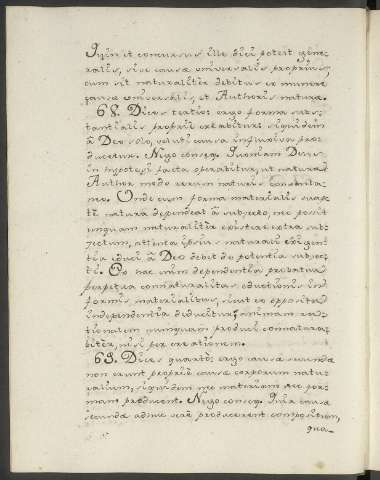 Quin et concursus ille dici potest gene-
ralis, sive causæ universalis proprius,
cum sit naturaliter debitus ex munere
causæ universalis, et Authoris naturæ.
68. Dices tertio: ergo forma subs-
tantialis proprie creabitur: siquidem
à Deo solo, veluti causa influxiva pro-
ducetur. Nego conseq. Quoniam Deus
in hypotesi facta operabitur, ut naturæ
Author modo rerum naturis consenta-
neo. Unde cum forma materialis suap-
te natura dependeat à subjecto, nec possit
unquam naturaliter existere extra sub-
jectum, attenta ipsius naturali exigen-
tia educi à Deo debet de potentia subjec-
ti. Ex hac enim dependentia probatur
perpetua connaturalitas eductionis in
formis materialibus, sicut ex opposita
independentia deducitur, animam ra-
tionalem nunquam produci connatura-
liter, nisi per creationem.
69. Dices quarto: ergo causæ secundæ
non erunt proprie causæ corporum natu-
ralium, siquidem nec materiam nec for-
mam producent. Nego conseq. Quia causæ
secundæ adhuc producerent compositum,
qua-